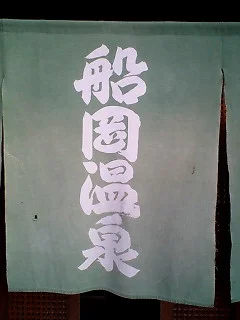 船岡温泉